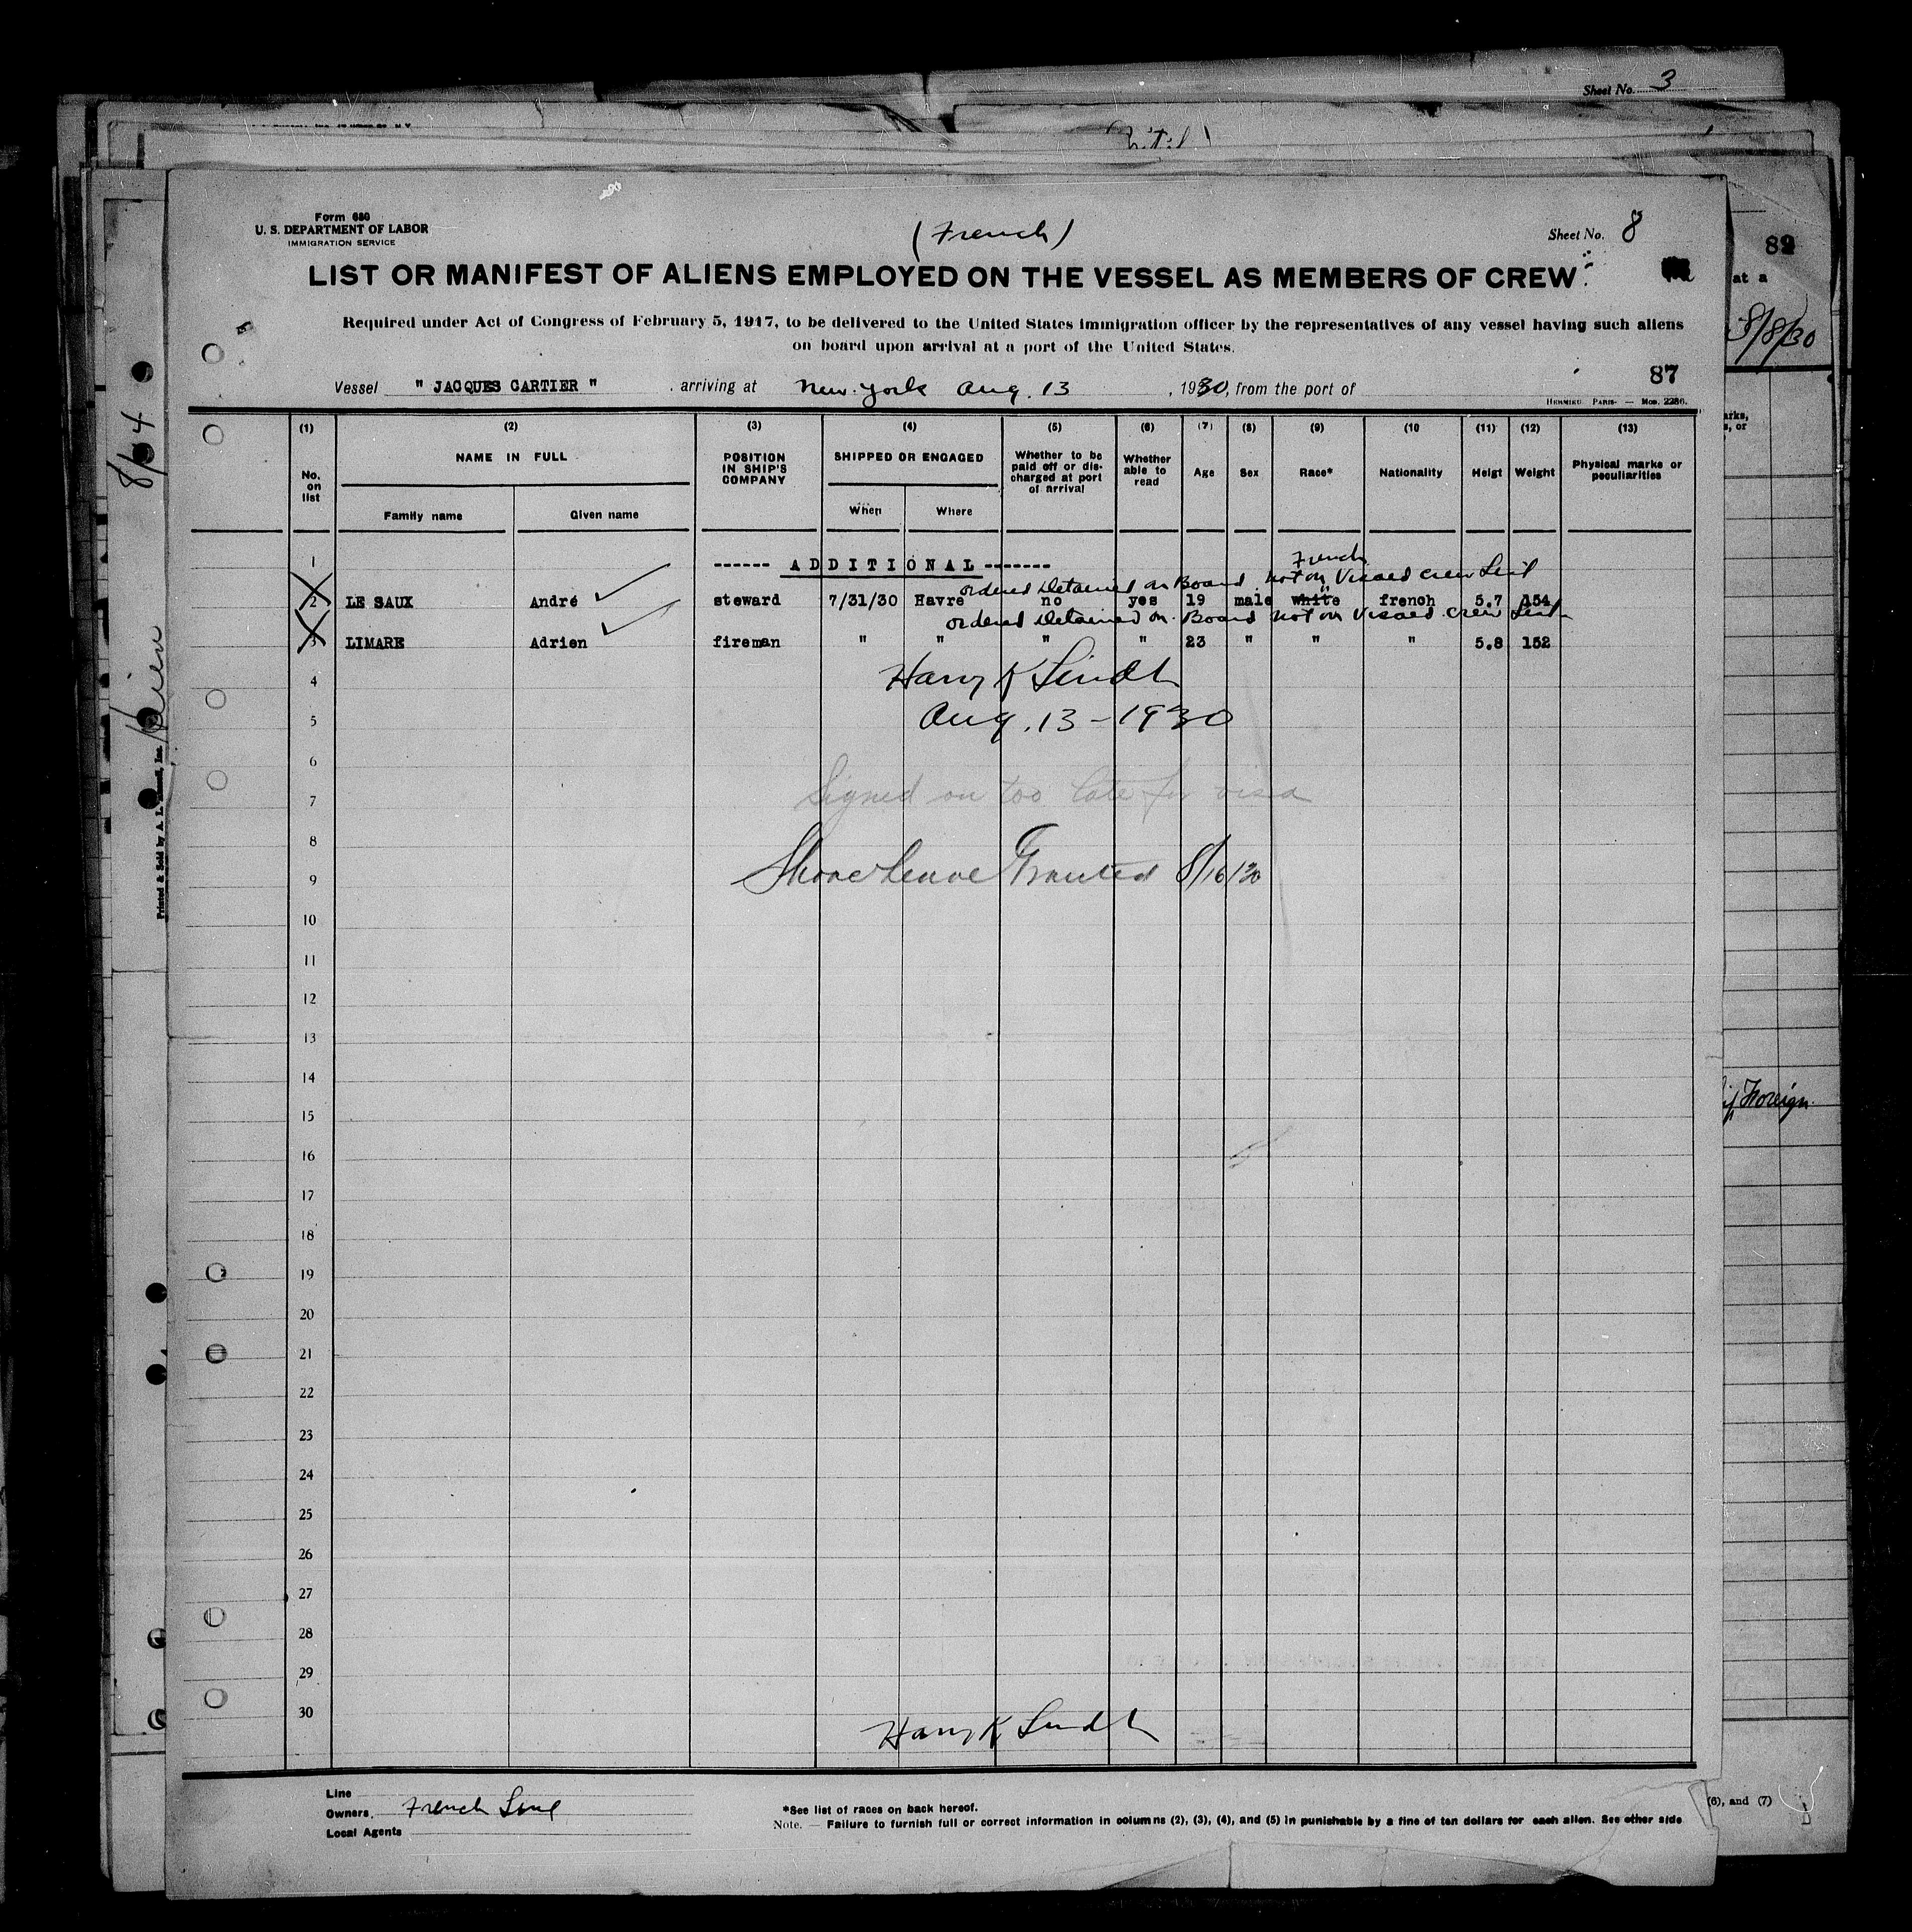 Sheet No. 3
Form 680
U. S. DEPARTMENT OF LABOR
IMMIGRATION SERVICE
(French)
Sheet No. 8
LIST OR MANIFEST OF ALIENS EMPLOYED ON THE VESSEL AS MEMBERS OF CREW
Required under Act of Congress of February 5, 1917, to be delivered to the United States immigration officer by the representatives of any vessel having such aliens
on board upon arrival at a port of the United States.
Vessel " JACQUES CARTIER " , arriving at New York Aug. 13 , 1930, from the port of
87
HERMIEU PARIS — Mod. 2286.
(1) (2) (3) (4) (5) (6) (7) (8) (9) (10 (11) (12) (13)
No. on list
NAME IN FULL
Family name
Given name
POSITION IN SHIP'S COMPANY
SHIPPED OR ENGAGED
When
Where
Whether to be paid off or dis-charged at port of arrival
Whether able to read
Age
Sex
Race*
Nationality
Heigt
Weight
Physical marks or peculiarities
1 ------ ADDITIONAL -------
French
ordered Detained on Board not on Visaed crew List
2 LE SAUX André steward 7/31/30 Havre no yes 19 male white french 5.7 154
ordered Detained on Board not on Visaed crew List
3 LIMARE Adrien fireman " " " " 23 " " " 5.8 152
4 Harry K Lindt
5 Aug. 13 - 1930
6
7 Signed on too late for visa
8
9 Shore Leave Granted 8/16/30
10
11
12
13
14
15
16
17
18
19
20
21
22
23
24
25
26
27
28
29
30
Harry K Lindt
Line
Owners French Line
Local Agents
*See list of races on back hereof.
Note. — Failure to furnish full or correct information in columns (2), (3), (4), and (5) in punishable by a fine of ten dollars for each alien. See other side
82
at a
8/8/30
Foreign
(6), and (7)
8/4
Printed & Sold by A. L.